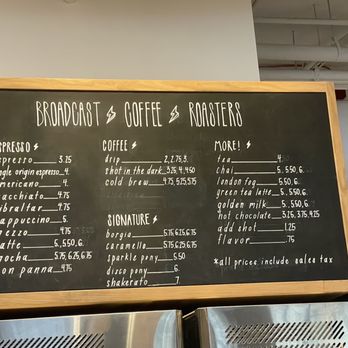 BROADCAST COFFEE ROASTERS
SPRESSO
spresso 3.25
ngle origin espresso 4.
mericano 4.
acchiato 4.75
ibraltar 4.75
appuccino 5.
rezzo 4.75
atte 5., 5.50, 6.
ocha 5.75, 6.25, 6.75
on panna 4.75
COFFEE
drip 2., 2.75, 3.
shot in the dark 3.25, 4., 4.50
cold brew 4.75, 5.25, 5.75
SIGNATURE
borgia 5.75, 6.25, 6.75
caramello 5.75, 6.25, 6.75
sparkle pony 5.50
disco pony 6.
shakerato 7.
MORE!
tea 4.
chai 5., 5.50, 6.
london fog 5., 5.50, 6.
green tea latte 5., 5.50, 6.
golden milk 5., 5.50, 6.
hot chocolate 3.25, 3.75, 4.25
add shot 1.25
flavor .75
*all prices include sales tax